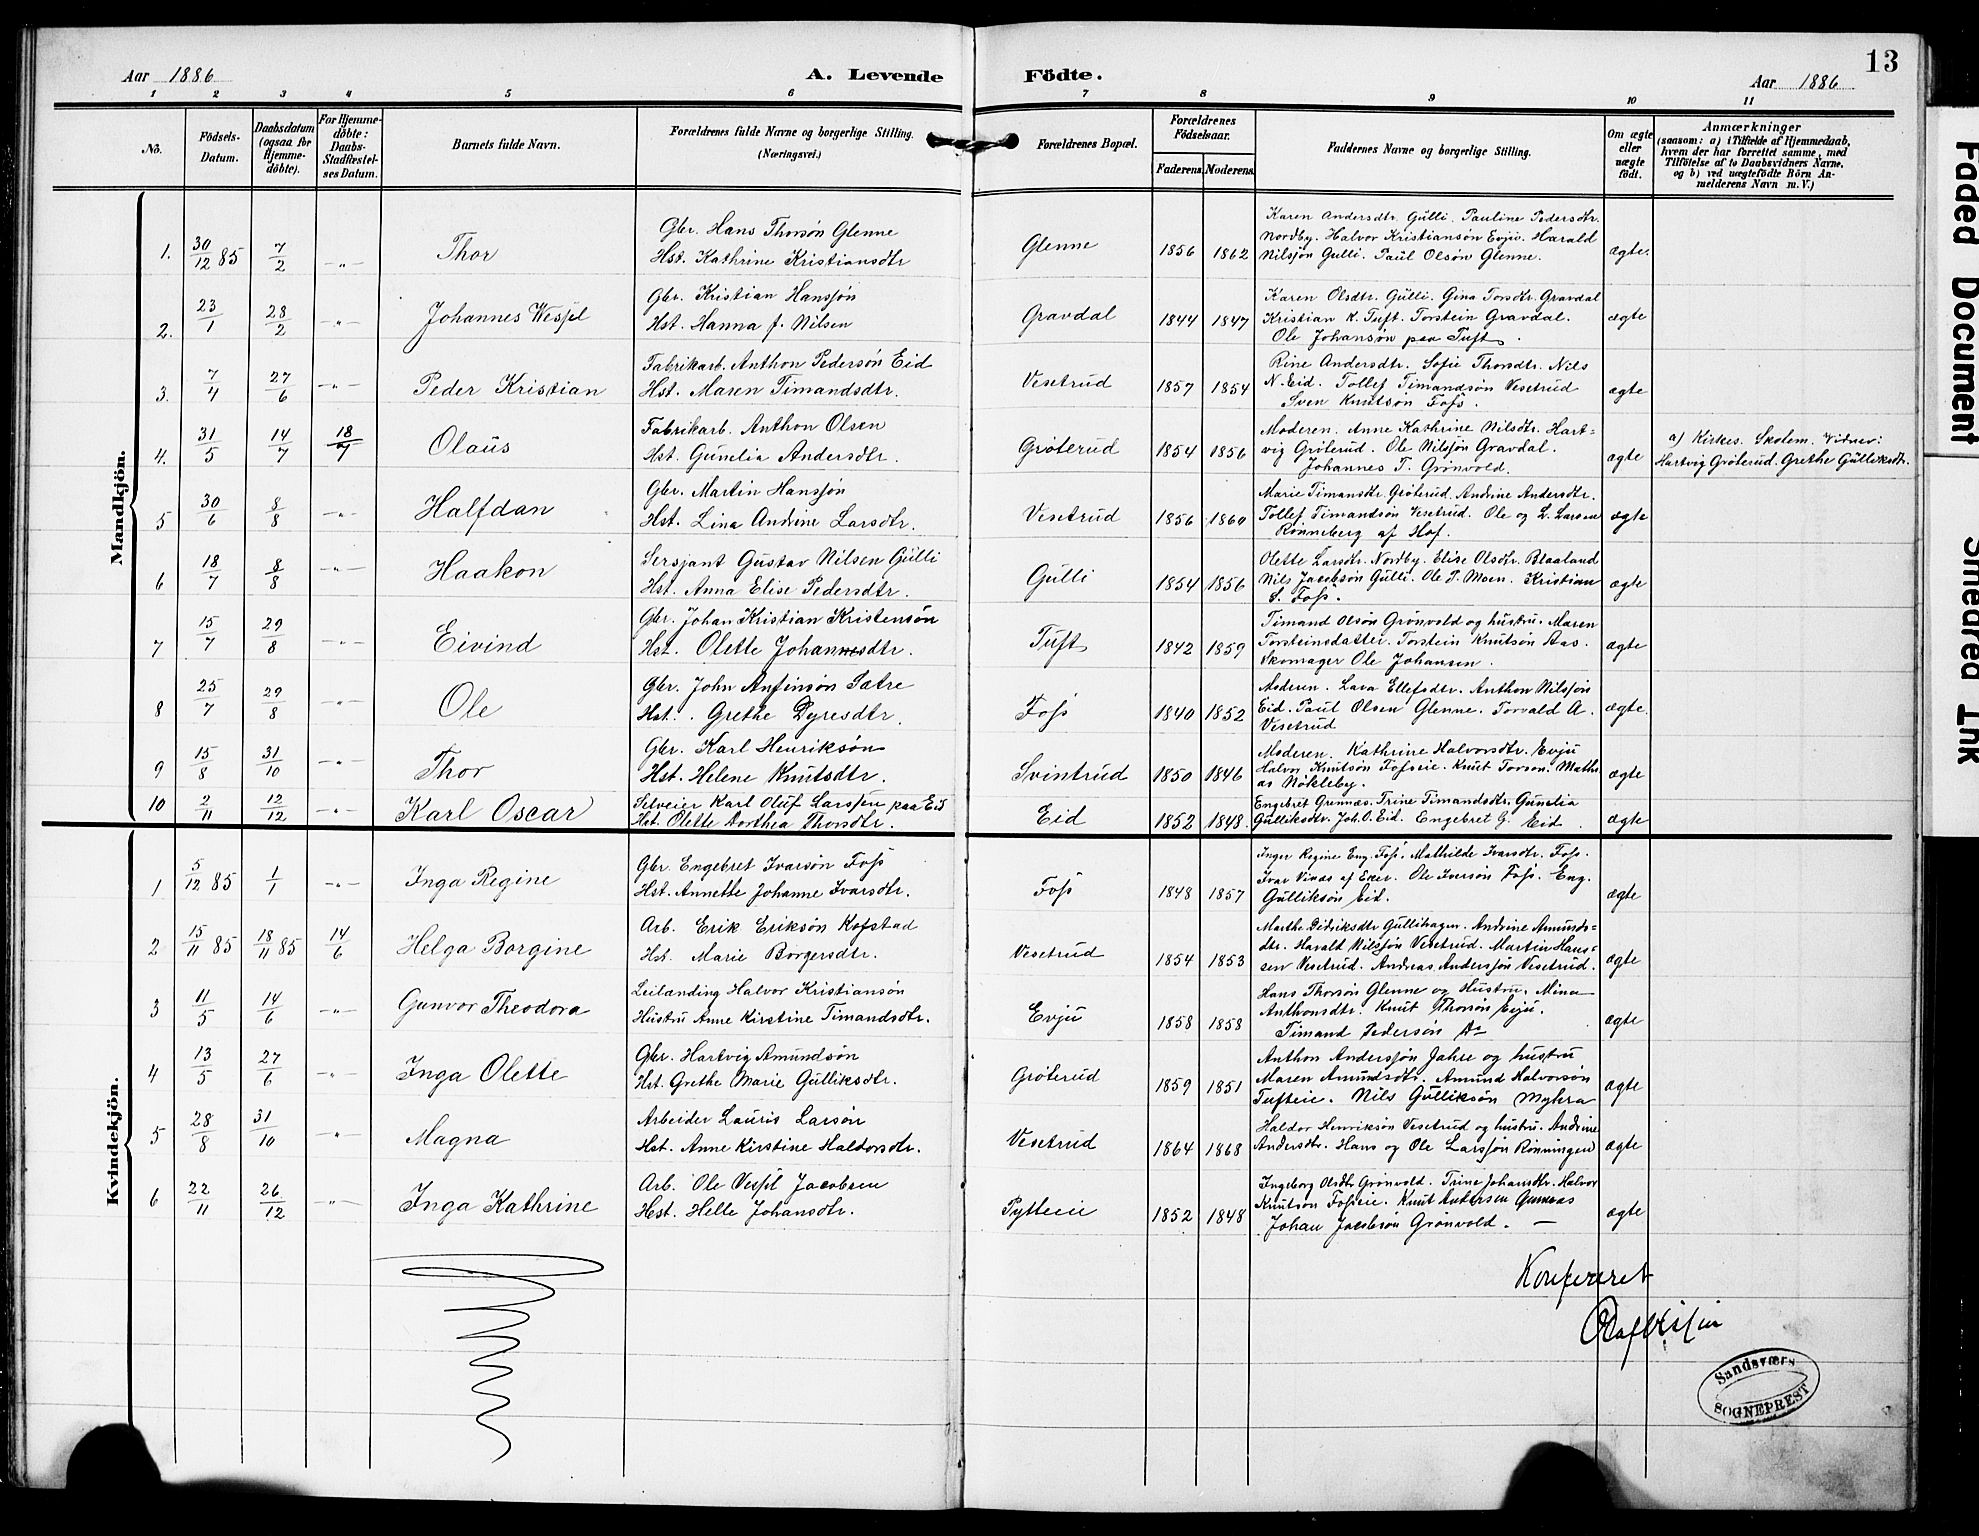 13
Aar 1886
A. Levende Födte.
Aar 1886
1 2 3 4 5 6 7 8 9 10 11
No.
Födsels-Datum.
Daabsdatum (ogsaa for Hjemmedöbte).
For Hjemmedöbte: Daabs-Stadfæstelses Datum.
Barnets fulde Navn.
Forældrenes fulde Navne og borgerlige Stilling. (Næringsvei.)
Forældrenes Bopæl.
Forældrenes Födselsaar.
Faderens. Moderens.
Faddernes Navne og borgerlige Stilling.
Om ægte eller uægte födt.
Anmærkninger
(saasom: a) i Tilfælde af Hjemmedaab,
hvem der har forrettet samme, med
Tilföielse af to Daabsvidners Navne,
og b) ved uægtefödte Börn An-
melderens Navn m. V.)
Mandkjön.
1. 30/12 85 7/2 -„- Thor
Gbr. Hans Thorsön Glenne
Hst. Kathrine Kristiansdtr
Glenne 1856 1862
Karen Andersdtr. Gulli. Pauline Pedersdtr.
Nordby. Halvor Kristiansön Evju. Harald
Nilssön Gulli. Paul Olsön Glenne.
ægte.
2. 23/1 28/2 -„- Johannes Wessel
Gbr. Kristian Hanssön
Hst. Hanna f. Nilsen
Gravdal 1844 1847
Karen Olsdtr. Gulli. Gina Torsdtr. Gravdal
Kristian K. Tuft. Torstein Gravdal.
Ole Johansön paa Tuft.
ægte
3. 7/4 27/6 -„- Peder Kristian
Fabrikarb. Anthon Pedersön Eid
Hst. Maren Timandsdtr.
Vesetrud 1857 1854
Rine Andersdtr. Sofie Thorsdtr. Nils
N. Eid. Tollef Timandsön Vesetrud
Sven Knutsön Foss.
ægte
4. 31/5 14/7 18/7 Olaus
Fabrikarb. Anthon Olsen
Hst. Gunelia Andersdtr.
Gröterud 1854 1856
Moderen. Anne Kathrine Nilsdtr. Hart-
vig Gröterud. Ole Nilssön Gravdal.
Johannes T. Grönvold.
ægte
a) Kirkes. Skolem. Vidner:
Hartvig Gröterud. Grethe Gulliksdtr.
5 30/6 8/8 -„- Halfdan
Gbr. Martin Hanssön
Hst. Lina Andrine Larsdtr.
Vesetrud 1856 1860
Marie Timansdtr. Gröterud. Andrine Andersdtr.
Tollef Timandsön Vesetrud. Ole og L. Larsen
Rönneberg af Hof.
ægte
6 18/7 8/8 -„- Haakon
Sersjant Gustav Nilsen Gulli
Hst. Anna Elise Pedersdtr.
Gulli 1854 1856
Olette Larsdtr. Nordby. Elise Olsdtr. Blaaland
Nils Jacobsön Gulli. Ole P. Moen. Kristian
S. Foss.
ægte
7 15/7 29/8 -„- Eivind
Gbr. Johan Kristian Kristensön
Hst. Olette Johannesdtr.
Tuft 1842 1859
Timand Olsön Grönvold og hustru. Maren
Torsteinsdatter. Torstein Knutsön Aas.
Skomager Ole Johansen.
ægte
8 25/7 29/8 -„- Ole
Gbr. John Anfinsön Sætre
Hst. Grethe Dyresdtr.
Foss 1840 1852
Moderen. Lava Ellefsdtr. Anthon Nilssön
Eid. Paul Olsen Glenne. Torvald A.
Vesetrud
ægte.
9 15/8 31/10 -„- Thor
Gbr. Karl Henriksön
Hst. Helene Knutsdtr.
Svintrud 1850 1846
Moderen. Kathrine Halvorsdtr. Evju
Halvor Knutsön Fosseie. Knut Torson. Mathi-
as Nökleby.
ægte
10 2/11 12/12 -„- Karl Oscar
Selveier Karl Oluf Larssen paa Eid
Hst. Olette Dorthea Thorsdtr.
Eid 1852 1848
Engebret Grennæs. Trine Timandsdtr. Gunelia
Gulliksdtr. Joh. O. Eid. Engebret G. Eid
ægte
Kvindekjön.
1 5/12 85 1/1 -„- Inga Regine
Gbr. Engebret Ivarsön Foss
Hst. Annette Johanne Ivarsdtr.
Foss 1848 1857
Inger Regine Eng. Foss. Mathilde Ivarsdtr. Foss.
Ivar Vinæs af Eker. Ole Iversön Foss. Eng.
Gulliksön Eid.
ægte
2 15/11 85 18/11 85 14/6 Helga Borgine
Arb. Erik Eriksön Kofstad
Hst. Marie Borgersdtr.
Vesetrud 1854 1853
Marthe Didriksdtr Gullihagen. Andrine Amunds-
dtr. Harald Nilssön Vesetrud. Martin Hans-
sen Vesetrud. Andreas Anderssön Vesetrud.
ægte
3 11/5 14/6 -„- Gunvor Theodora
Leilænding Halvor Kristiansön
Hustru Anne Kirstine Timandsdtr.
Evju 1858 1858
Hans Thorsön Glenne og Hustru. Mina
Anthonsdtr. Knut Thorsön Evju.
Timand Pedersön Do
ægte
4 13/5 27/6 -„- Inga Olette
Gbr. Hartvig Amundsön
Hst. Grethe Marie Gulliksdtr.
Gröterud 1859 1851
Anthon Anderssön Jahre og hustru
Maren Amundsdtr. Amund Halvorsön
Tufteie. Nils Gulliksön Myhra
ægte
5 28/8 31/10 -„- Magna
Arbeider Lauris Larsön
Hst. Anne Kirstine Haldorsdtr.
Vesetrud 1864 1868
Haldor Henriksön Vesetrud og hustru. Andrine
Andersdtr. Hans og Ole Larssön Rönningen
ægte
6 22/11 26/12 -„- Inga Kathrine
Arb. Ole Vessel Jacobsen
Hst. Helle Johansdtr.
Pytteeie 1852 1848
Ingeborg Olsdtr Grönvold. Trine Johansdtr. Halvor
Knutsön Fosseie. Knut Andersen Gunnæs
Johan Jacobsön Grönvold. —
ægte
Konfereret
Sandsværs
SOGNEPREST
Faded Document
Smeared Ink